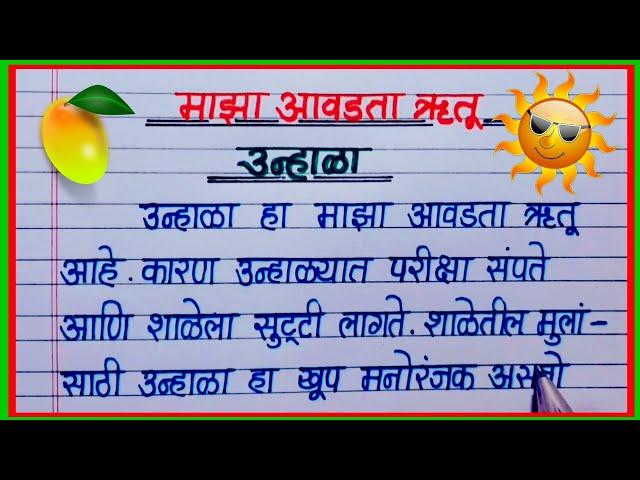 माझा आवडता ऋतू
उन्हाळा
उन्हाळा हा माझा आवडता ऋतू
आहे. कारण उन्हाळ्यात परीक्षा संपते
आणि शाळेला सुट्टी लागते. शाळेतील मुलां-
साठी उन्हाळा हा खूप मनोरंजक असतो